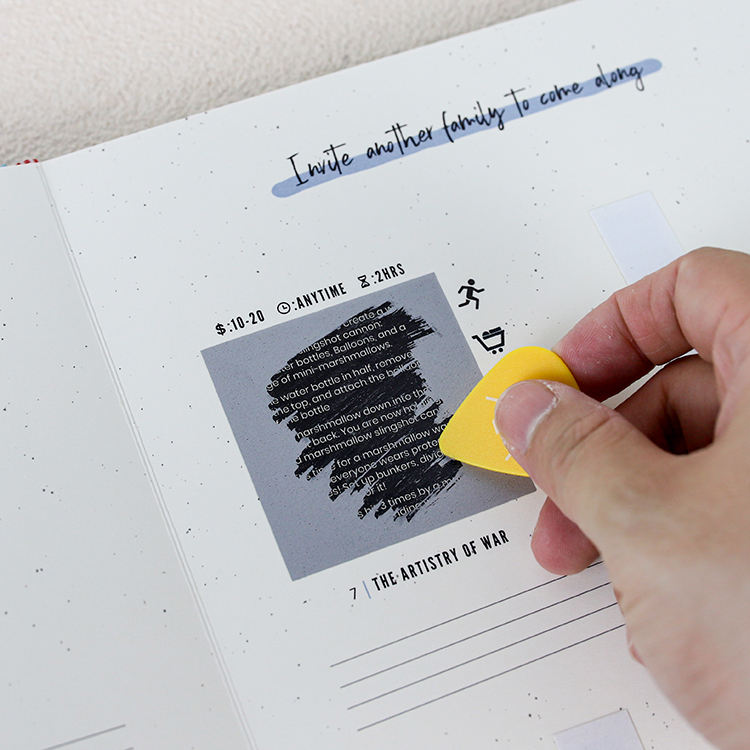 Invite another family to come along
$:10-20 :ANYTIME :2HRS
create a
slingshot cannon.
bottles, Balloons, and a
of mini-marshmallows.
water bottle in half, remove
the top, and attach the
bottle
marshmallow down into the
back. You are now
marshmallow slingshot
for a marshmallow
everyone wears
Set up bunkers,
it!
3 times by a
7 | THE ARTISTRY OF WAR